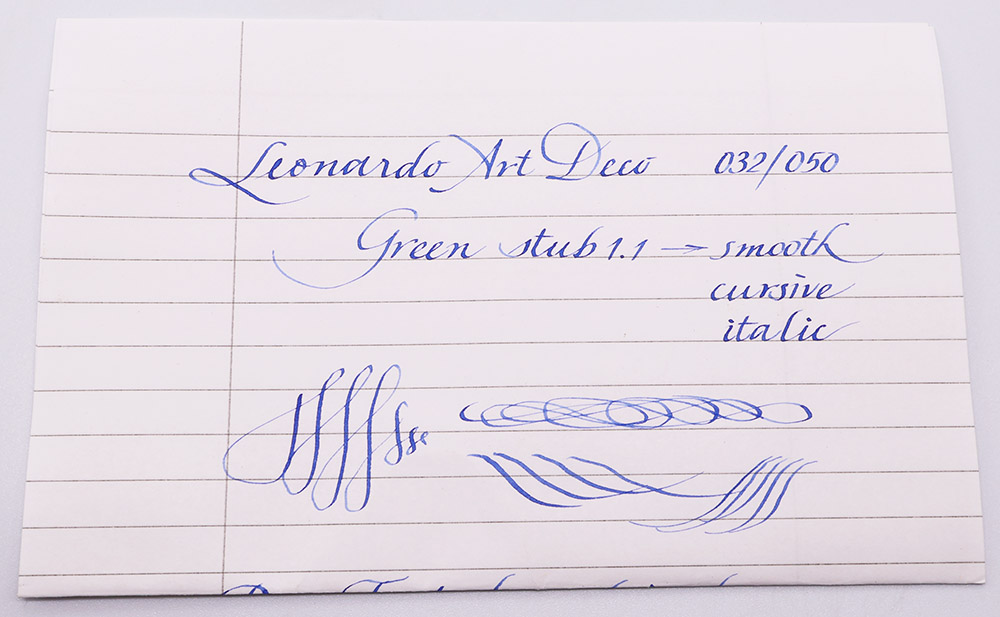 Leonardo Art Deco 032/050
Green stub 1.1 → smooth
cursive
italic